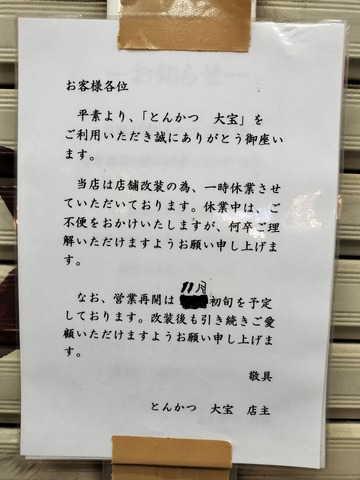 お客様各位
平素より、「とんかつ　大宝」を
ご利用いただき誠にありがとう御座い
ます。
当店は店舗改装の為、一時休業させ
ていただいております。休業中は、ご
不便をおかけいたしますが、何卒ご理
解いただけますようお願い申し上げま
す。
11月
なお、営業再開は初旬を予定
しております。改装後も引き続きご愛
顧いただけますようお願い申し上げま
す。
敬具
とんかつ　大宝　店主